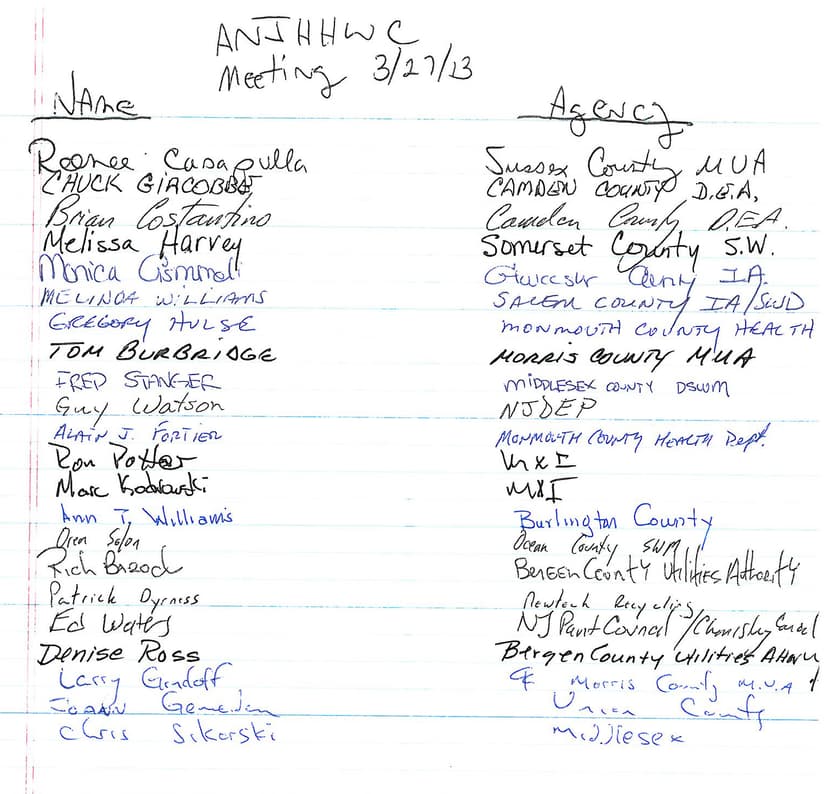 ANJHHWC
Meeting 3/27/13
Name Agency
Renee Casapulla Sussex County MUA
CHUCK GIACOBBE CAMDEN COUNTY D.E.A.
Brian Costantino Camden County D.E.A.
Melissa Harvey Somerset County S.W.
Monica Gismondi Gloucester County IA.
MELINDA WILLIAMS SALEM COUNTY IA/SWD
GREGORY HULSE MONMOUTH COUNTY HEALTH
TOM BURBRIDGE MORRIS COUNTY MUA
FRED STANGER MIDDLESEX COUNTY DSWM
Guy Watson NJDEP
ALAIN J. FORTIER MONMOUTH COUNTY HEALTH Dept.
Ron Potter MXI
Marc MXI
Ann T. Williams Burlington County
Ocean County SWM
Rich Baeod BERGEN COUNTY Utilities Authority
Patrick Dyrness Newtech Recycling
Ed Waters NJ Paint Council / Chemistry Council
Denise Ross Bergen County Utilities
Larry Gindoff Morris County M.U.A
JOANN Union County
Chris Sikorski Middlesex